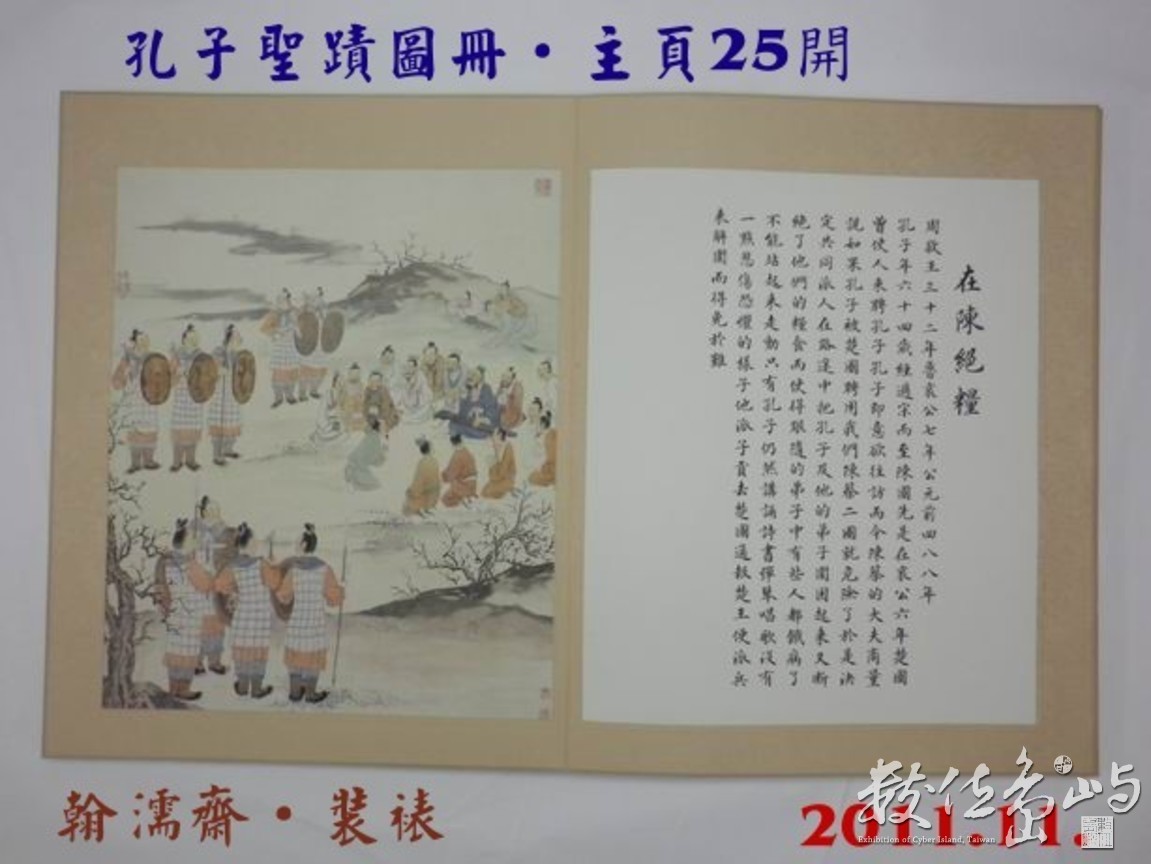 孔子聖蹟圖冊・主頁25開
在陳絕糧
周敬王三十二年魯哀公七年公元前四八八年
孔子年六十四歲經過宋而至陳國先是在哀公六年楚國
曾使人來聘孔子孔子即意欲往訪而令陳蔡的大夫商量
說如果孔子被楚國聘用我們陳蔡二國就危險了於是決
定共同派人在路途中把孔子及他的弟子圍困起來又斷
絕了他們的糧食而使得跟隨的弟子中有些人都餓病了
不能站起來走動只有孔子仍然講誦詩書彈琴唱歌沒有
一點悲傷恐懼的樣子他派子貢去楚國通報楚王使派兵
來解圍而得免於難
翰濡齋・裝裱
2011.11.
數位島嶼
Exhibition of Cyber Island, Taiwan